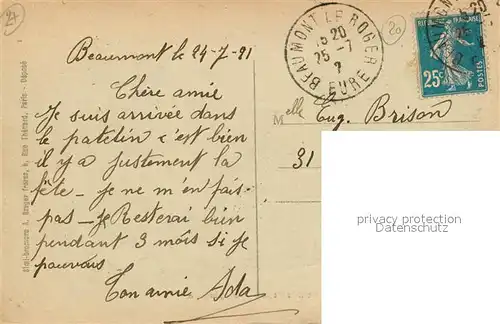 27
Beaumont le 24-7-21
Chère amie
Je suis arrivée dans
le patelin c'est bien
il y a justement la
fête - je ne m'en fais
pas - je Resterai bien
pendant 3 mois si je
pouvais
Ton amie Ada
BEAUMONT LE ROGER
15 20
25 - 7
?
EURE
20
25c
POSTES
Melle Eug. Brison
31
privacy protection
Datenschutz